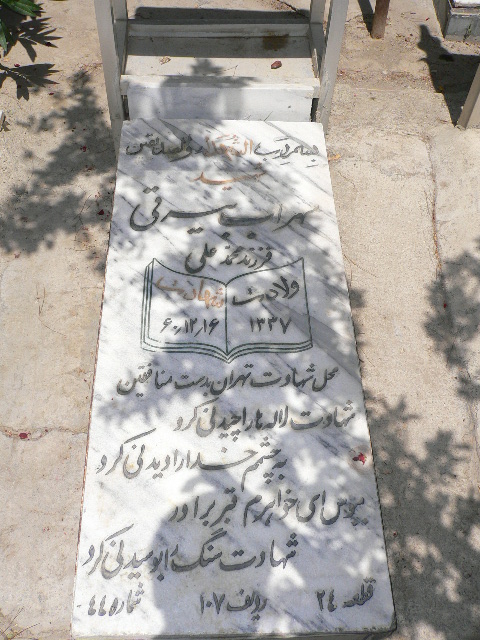 بسم رب الشهداء و الصدیقین
شهید
سهراب بیرقی
فرزند محمد علی
ولادت شهادت
۱۳۳۷ ۶۰/۱۲/۱۶
محل شهادت تهران بدست منافقین
شهادت لاله ها را چیدنی کرد
به چشم خدا را دیدنی کرد
ببوس ای خواهرم قبر برادر
شهادت سنگ را بوسیدنی کرد
قطعه ۲۴ ردیف ۱۰۷ شماره ۴۴